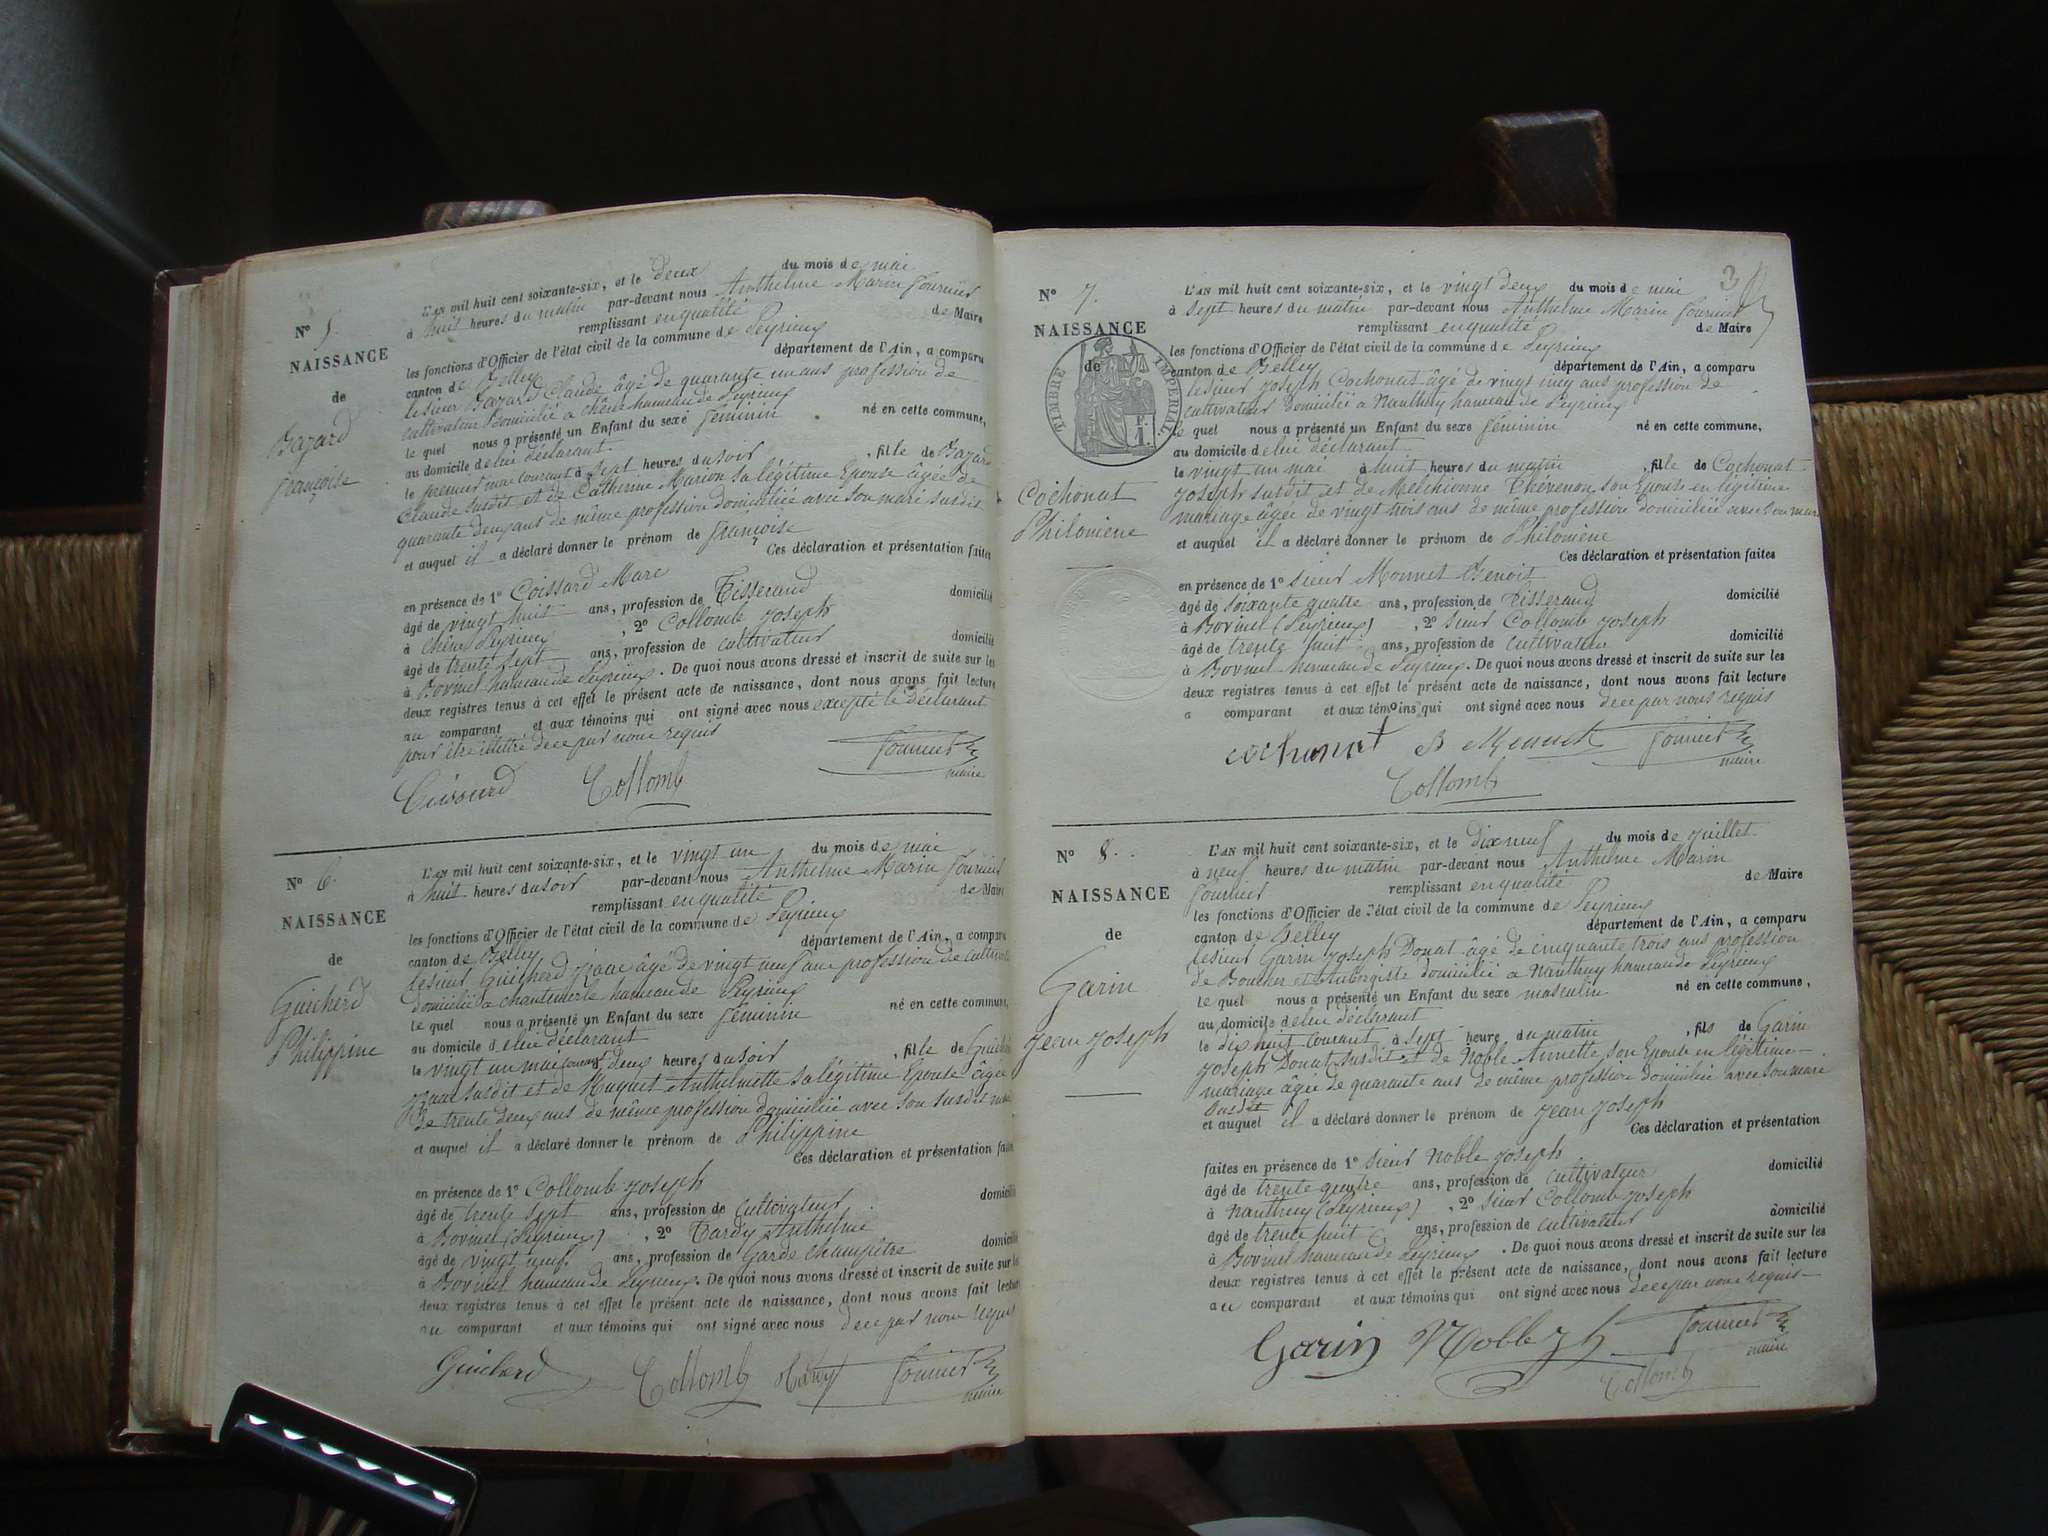 N° 5.
NAISSANCE
de
Bazard
françoise
L'AN mil huit cent soixante-six, et le deux du mois de mai
à huit heures du matin par-devant nous Anthelme Marin fournier
remplissant en qualité de Maire
les fonctions d'Officier de l'état civil de la commune de Peyrieux
canton de Belley département de l'Ain, a comparu
le sieur Bazard Claude âgé de quarante un ans profession de
cultivateur domicilié a chêne hameau de Peyrieux
le quel nous a présenté un Enfant du sexe féminin né en cette commune,
au domicile de lui déclarant
le premier mai courant à sept heures du soir , fille de Bazard
Claude susdit et de Catherine Marion sa légitime Epouse âgée de
quarante deux ans de même profession domiciliée avec son mari susdit
et auquel il a déclaré donner le prénom de françoise
Ces déclaration et présentation faites
en présence de 1° Coissard Marc
âgé de vingt huit ans, profession de Tisserand domicilié
à Chêne Peyrieux , 2° Collomb Joseph
âgé de trente sept ans, profession de cultivateur domicilié
à Bovinel hameau de Peyrieux. De quoi nous avons dressé et inscrit de suite sur les
deux registres tenus à cet effet le présent acte de naissance, dont nous avons fait lecture
au comparant et aux témoins qui ont signé avec nous excepté le déclarant
pour être illettré de ce par nous requis
Coissard Collomb fournier
maire
N° 6.
NAISSANCE
de
Guicherd
Philippine
L'AN mil huit cent soixante-six, et le vingt un du mois de mai
à huit heures du soir par-devant nous Anthelme Marin fournier
remplissant en qualité de Maire
les fonctions d'Officier de l'état civil de la commune de Peyrieux
canton de Belley département de l'Ain, a comparu
le sieur Guicherd Isaac âgé de vingt neuf ans profession de cultivateur
domicilié a chantemerle hameau de Peyrieux
le quel nous a présenté un Enfant du sexe féminin né en cette commune,
au domicile de lui déclarant
le vingt un mai courant à deux heures du soir , fille de Guicherd
Isaac susdit et de Huguet Anthelmette sa légitime Epouse âgée
de trente deux ans de même profession domiciliée avec son susdit mari
et auquel il a déclaré donner le prénom de Philippine
Ces déclaration et présentation faites
en présence de 1° Collomb Joseph
âgé de trente sept ans, profession de cultivateur domicilié
à Bovinel (Peyrieux) , 2° Tardy Anthelme
âgé de vingt neuf ans, profession de Garde champêtre domicilié
à Bovinel hameau de Peyrieux. De quoi nous avons dressé et inscrit de suite sur les
deux registres tenus à cet effet le présent acte de naissance, dont nous avons fait lecture
au comparant et aux témoins qui ont signé avec nous de ce par nous requis
Guicherd Collomb Tardy fournier
maire
3
N° 7.
NAISSANCE
de
TIMBRE IMPÉRIAL
Cochonat
Philomène
L'AN mil huit cent soixante-six, et le vingt deux du mois de mai
à sept heures du matin par-devant nous Anthelme Marin fournier
remplissant en qualité de Maire
les fonctions d'Officier de l'état civil de la commune de Peyrieux
canton de Belley département de l'Ain, a comparu
le sieur Joseph Cochonat âgé de vingt cinq ans profession de
cultivateur domicilié a Nanthuy hameau de Peyrieux
le quel nous a présenté un Enfant du sexe féminin né en cette commune,
au domicile de lui déclarant
le vingt un mai à huit heures du matin , fille de Cochonat
Joseph susdit et de Melchionne Thévenon son Epouse en légitime
mariage âgée de vingt trois ans de même profession domiciliée avec son mari
et auquel il a déclaré donner le prénom de Philomène
Ces déclaration et présentation faites
en présence de 1° sieur Monnet Benoit
âgé de soixante quatre ans, profession de Tisserand domicilié
à Bovinel (Peyrieux) , 2° sieur Collomb Joseph
âgé de trente huit ans, profession de cultivateur domicilié
à Bovinel hameau de Peyrieux. De quoi nous avons dressé et inscrit de suite sur les
deux registres tenus à cet effet le présent acte de naissance, dont nous avons fait lecture
a comparant et aux témoins qui ont signé avec nous de ce par nous requis
cochonat B Monnet fournier
maire
Collomb
N° 8.
NAISSANCE
de
Garin
Jean Joseph
L'AN mil huit cent soixante-six, et le dix neuf du mois de juillet
à neuf heures du matin par-devant nous Anthelme Marin
fournier remplissant en qualité de Maire
les fonctions d'Officier de l'état civil de la commune de Peyrieux
canton de Belley département de l'Ain, a comparu
le sieur Garin Joseph Donat âgé de cinquante trois ans profession
de Boucher et Aubergiste domicilié a Nanthuy hameau de Peyrieux
le quel nous a présenté un Enfant du sexe masculin né en cette commune,
au domicile de lui déclarant
le dix huit courant à sept heure du matin , fils de Garin
Joseph Donat susdit et de Noble Annette son Epouse en légitime
mariage âgée de quarante ans de même profession domiciliée avec son mari
susdit
et auquel il a déclaré donner le prénom de Jean Joseph
Ces déclaration et présentation
faites en présence de 1° sieur Noble Joseph
âgé de trente quatre ans, profession de cultivateur domicilié
à Nanthuy (Peyrieux) , 2° sieur Collomb Joseph
âgé de trente huit ans, profession de cultivateur domicilié
à Bovinel hameau de Peyrieux. De quoi nous avons dressé et inscrit de suite sur les
deux registres tenus à cet effet le présent acte de naissance, dont nous avons fait lecture
au comparant et aux témoins qui ont signé avec nous de ce par nous requis
Garin Noble Jh fournier
maire
Collomb